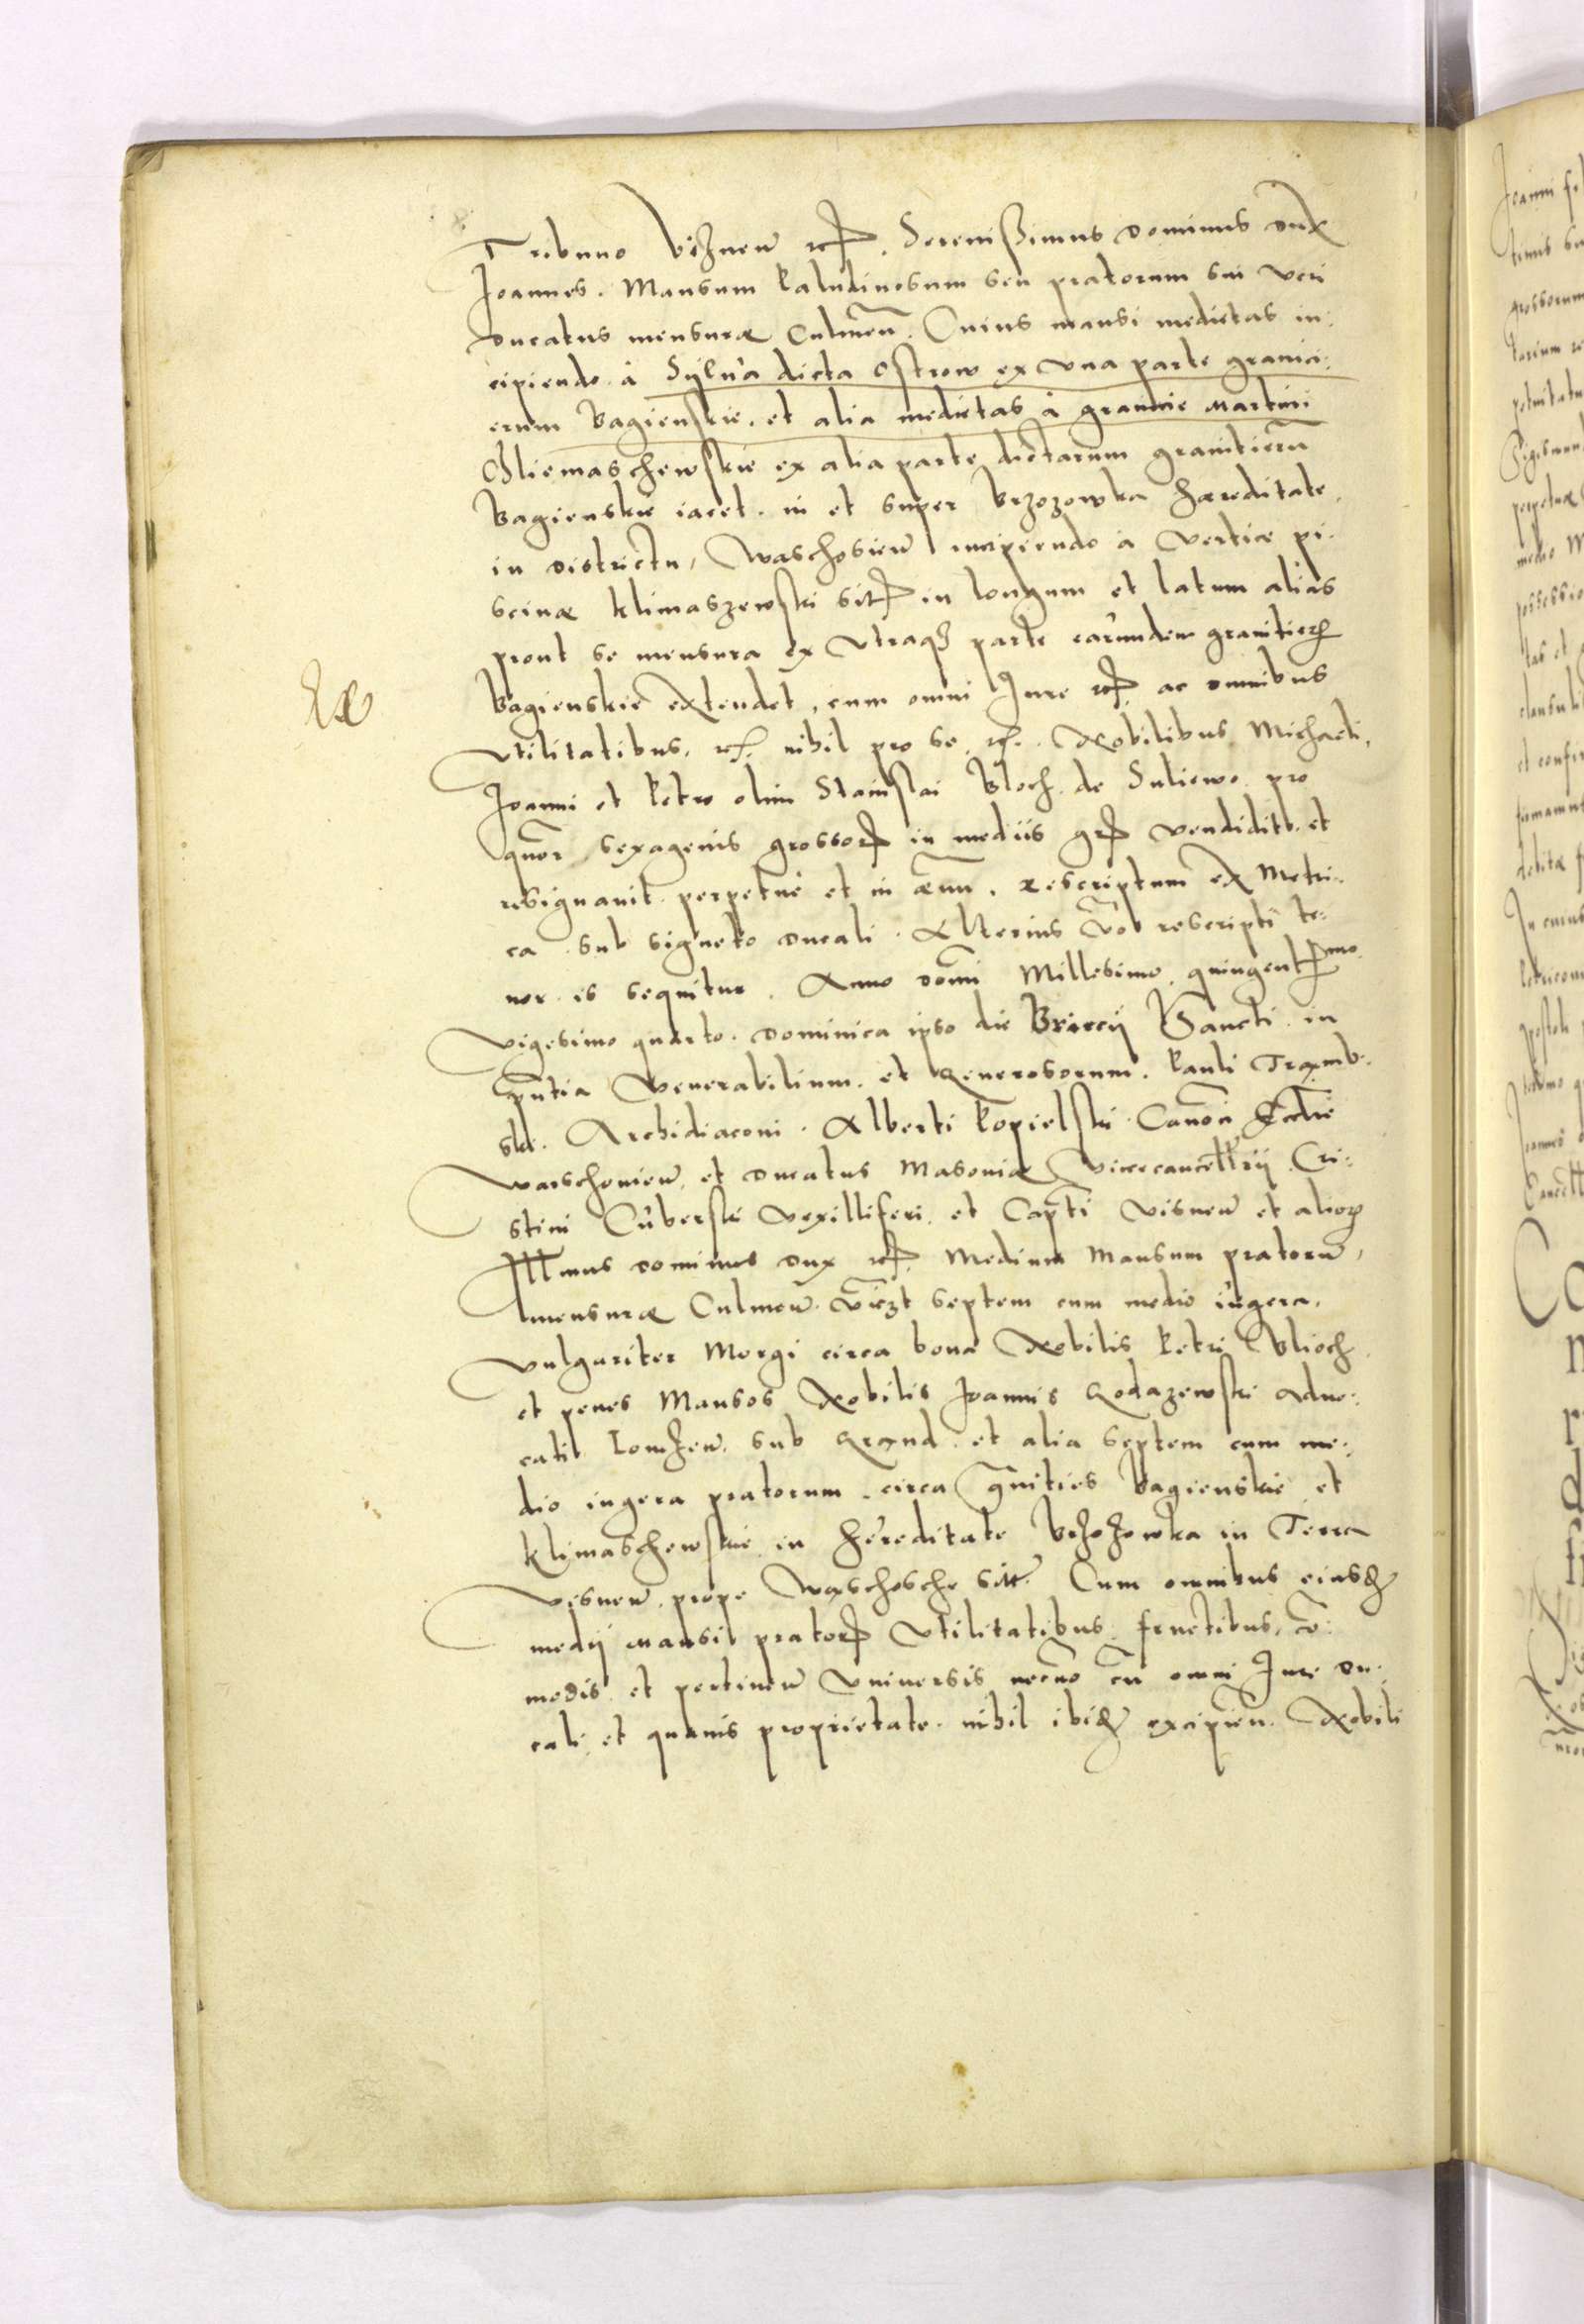 Tribuno Viznen̄ etc. Serenissimus dominus dux
Joannes. Mansum Paludinosum seu pratorum sui veri
ducatus mensuræ Culmen̄. Cuius mansi medietas in:
cipiendo à Sylua dicta Ostrow ex vna parte granici:
erum Bagienskie. et alia medietas à granicie Martini
Chliemaschewskie ex alia parte dictarum granitierū
Bagienskie iacet. in et super Brzozowka hæreditate.
in districtu, Waschosien̄ incipiendo à vertice pi-
scinæ Klimaszewski sit. in longum et latum alias
prout se mensura ex vtraq3 parte earundem granitier.
Bagienskie extendet, cum omni Jure etc. ac omnibus
vtilitatibus. etc. nihil pro se. etc. Nobilibus Michaeli,
Joanni et Petro olim Stanislai Bloch de Suliewo pro
quor sexagenis grossor. in mediis gr. vendidit. et
resignauit perpetuè et in æuū. rescriptum ex Metri-
ca sub signeto ducali. Alterius vō rescripti te:
nor is sequitur. Anno dom̄i Millesimo quingent.mo
vigesimo quarto. dominica ipso die Briccij Sancti in
pn̄tia Venerabilium. et Generosorum. Pauli Trąmb-
ski. Archidiaconi. Alberti Popielski. Canon̄i Eccl̄ie
Warschouien̄. et ducatus Masoniæ Vicecancell̄rij Cri:
stini Cuberski vexilliferi. et Capt̄i visnen̄ et alior.
Illmus dominus dux etc. Medium Mansum pratorū,
mensuræ Culmen̄. vīczt septem cum medio iugera,
vulgariter Morgi circa bona Nobilis Petri Blioch
et penes Mansos Nobilis Joannis Godazewski aduo:
cati Lomzen̄. sub Grąnd. et alia septem cum me:
dio iugera pratorum. circa grn̄ities Bagienskie et
Klimaschewskie in hereditate Brzozowka in Terra
visnen̄. prope Waschosche sitt̄. Cum omnibus eiusd.
medij mansi prator. vtilitatibus. fructibus, cō:
modis. et pertinen̄ vniuersis necnō cū omni Jure du:
cali et quauis proprietate. nihil ibid. excipien̄. Nobili